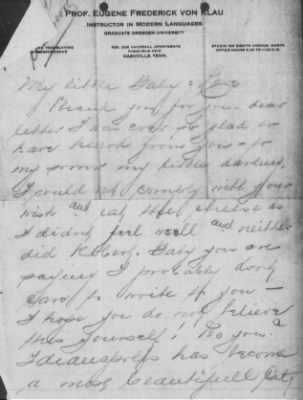 PROF. EUGENE FREDERICK VON KLAU
INSTRUCTOR IN MODERN LANGUAGES
GRADUATE DRESDEN UNIVERSITY
TRANSLATING
CORRESPONDENCE
NASHVILLE, TENN.
My little Baby:
Thank you for your dear
letter I was ever so glad to
have heard from you - to
my sorrow my little darling,
I could not comply with your
wish and eat the cheese as
I didn't feel well and neither
did Baby you are
saying I probably don't
care to write to you -
I hope you do not believe
this yourself! Do you?
Indianapolis has become
a most beautifull City